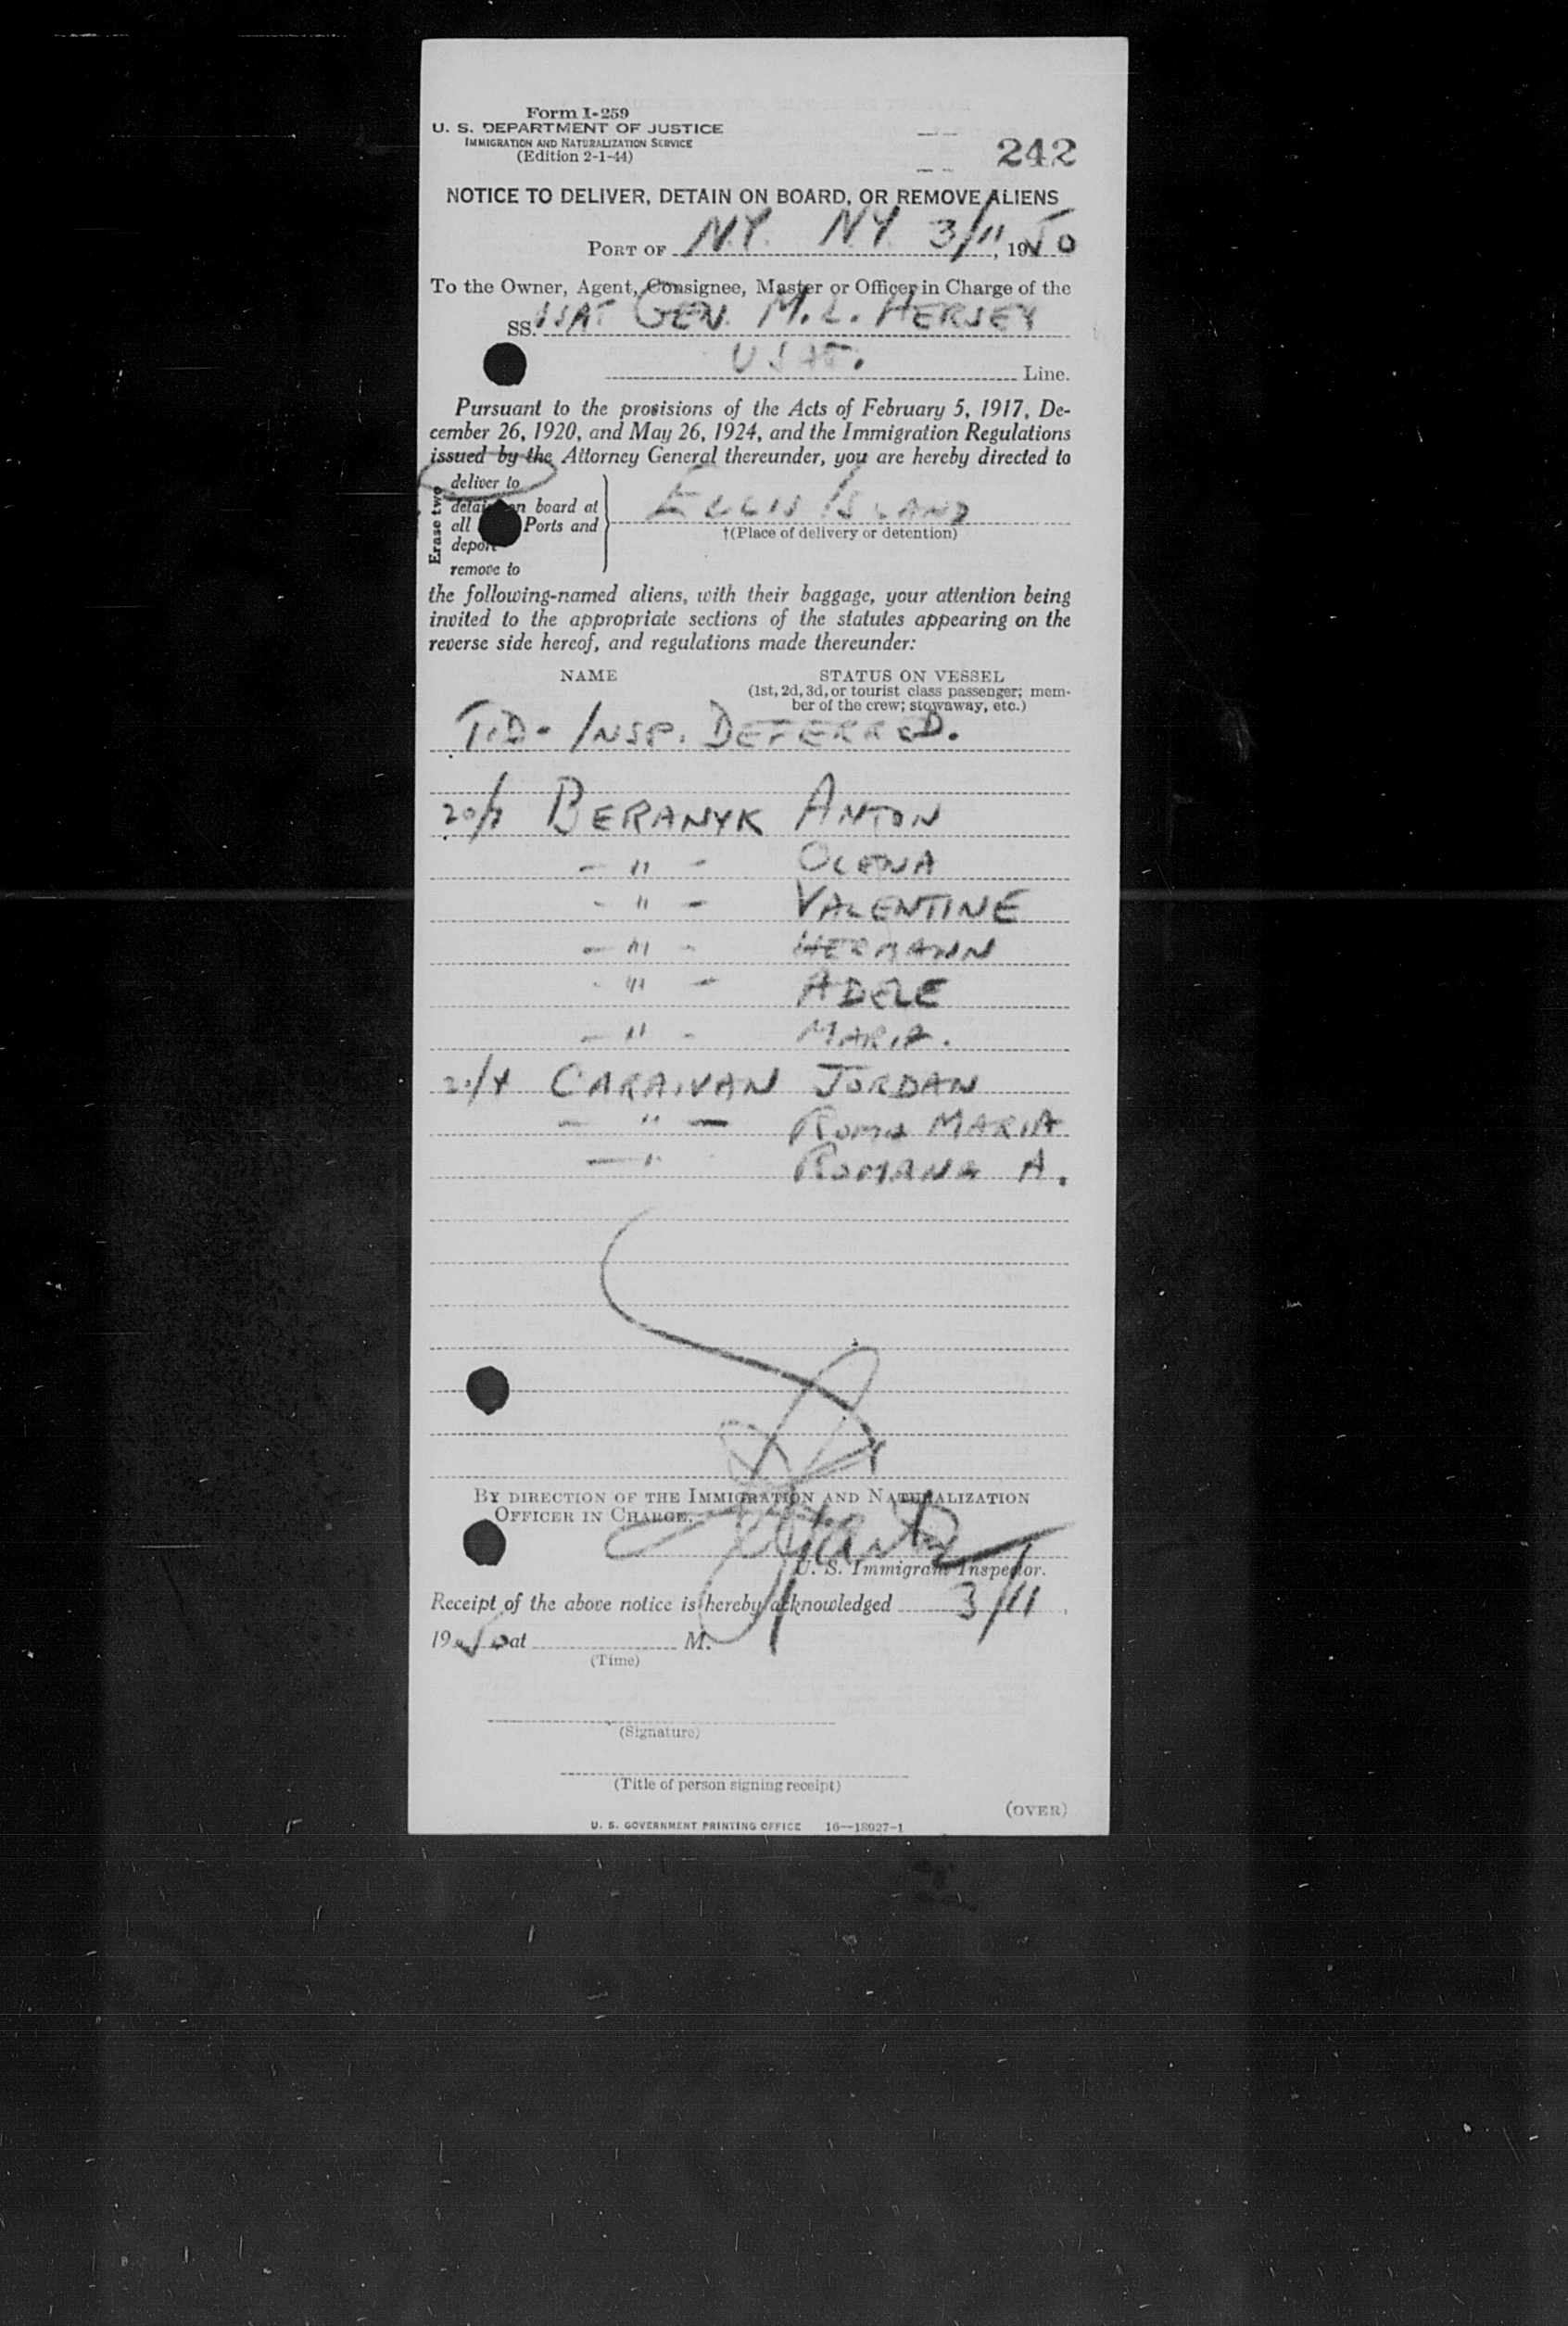 Form I-259
U. S. DEPARTMENT OF JUSTICE
IMMIGRATION AND NATURALIZATION SERVICE
(Edition 2-1-44)
242
NOTICE TO DELIVER, DETAIN ON BOARD, OR REMOVE ALIENS
PORT OF N.Y. N.Y 3/11, 1950
To the Owner, Agent, Consignee, Master or Officer in Charge of the
SS. USAT GEN. M. L. HERSEY
USAT. Line.
Pursuant to the provisions of the Acts of February 5, 1917, De-
cember 26, 1920, and May 26, 1924, and the Immigration Regulations
issued by the Attorney General thereunder, you are hereby directed to
Erase two
deliver to
detain on board at
all Ports and
deport
remove to
ELLIS ISLAND
†(Place of delivery or detention)
the following-named aliens, with their baggage, your attention being
invited to the appropriate sections of the statutes appearing on the
reverse side hereof, and regulations made thereunder:
NAME STATUS ON VESSEL
(1st, 2d, 3d, or tourist class passenger; mem-
ber of the crew; stowaway, etc.)
T.D- INSP. DEFERRED.
BERANYK ANTON
- " - OLENA
- " - VALENTINE
- " - HERMANN
- " - ADELE
- " - MARIA.
20/4 CARAIVAN JORDAN
- " - ROMA MARIA
- " ROMANA A.
BY DIRECTION OF THE IMMIGRATION AND NATURALIZATION
OFFICER IN CHARGE.
U. S. Immigrant Inspector.
Receipt of the above notice is hereby acknowledged 3/11,
1950 at M.
(Time)
(Signature)
(Title of person signing receipt)
(OVER)
U. S. GOVERNMENT PRINTING OFFICE 16—18927-1